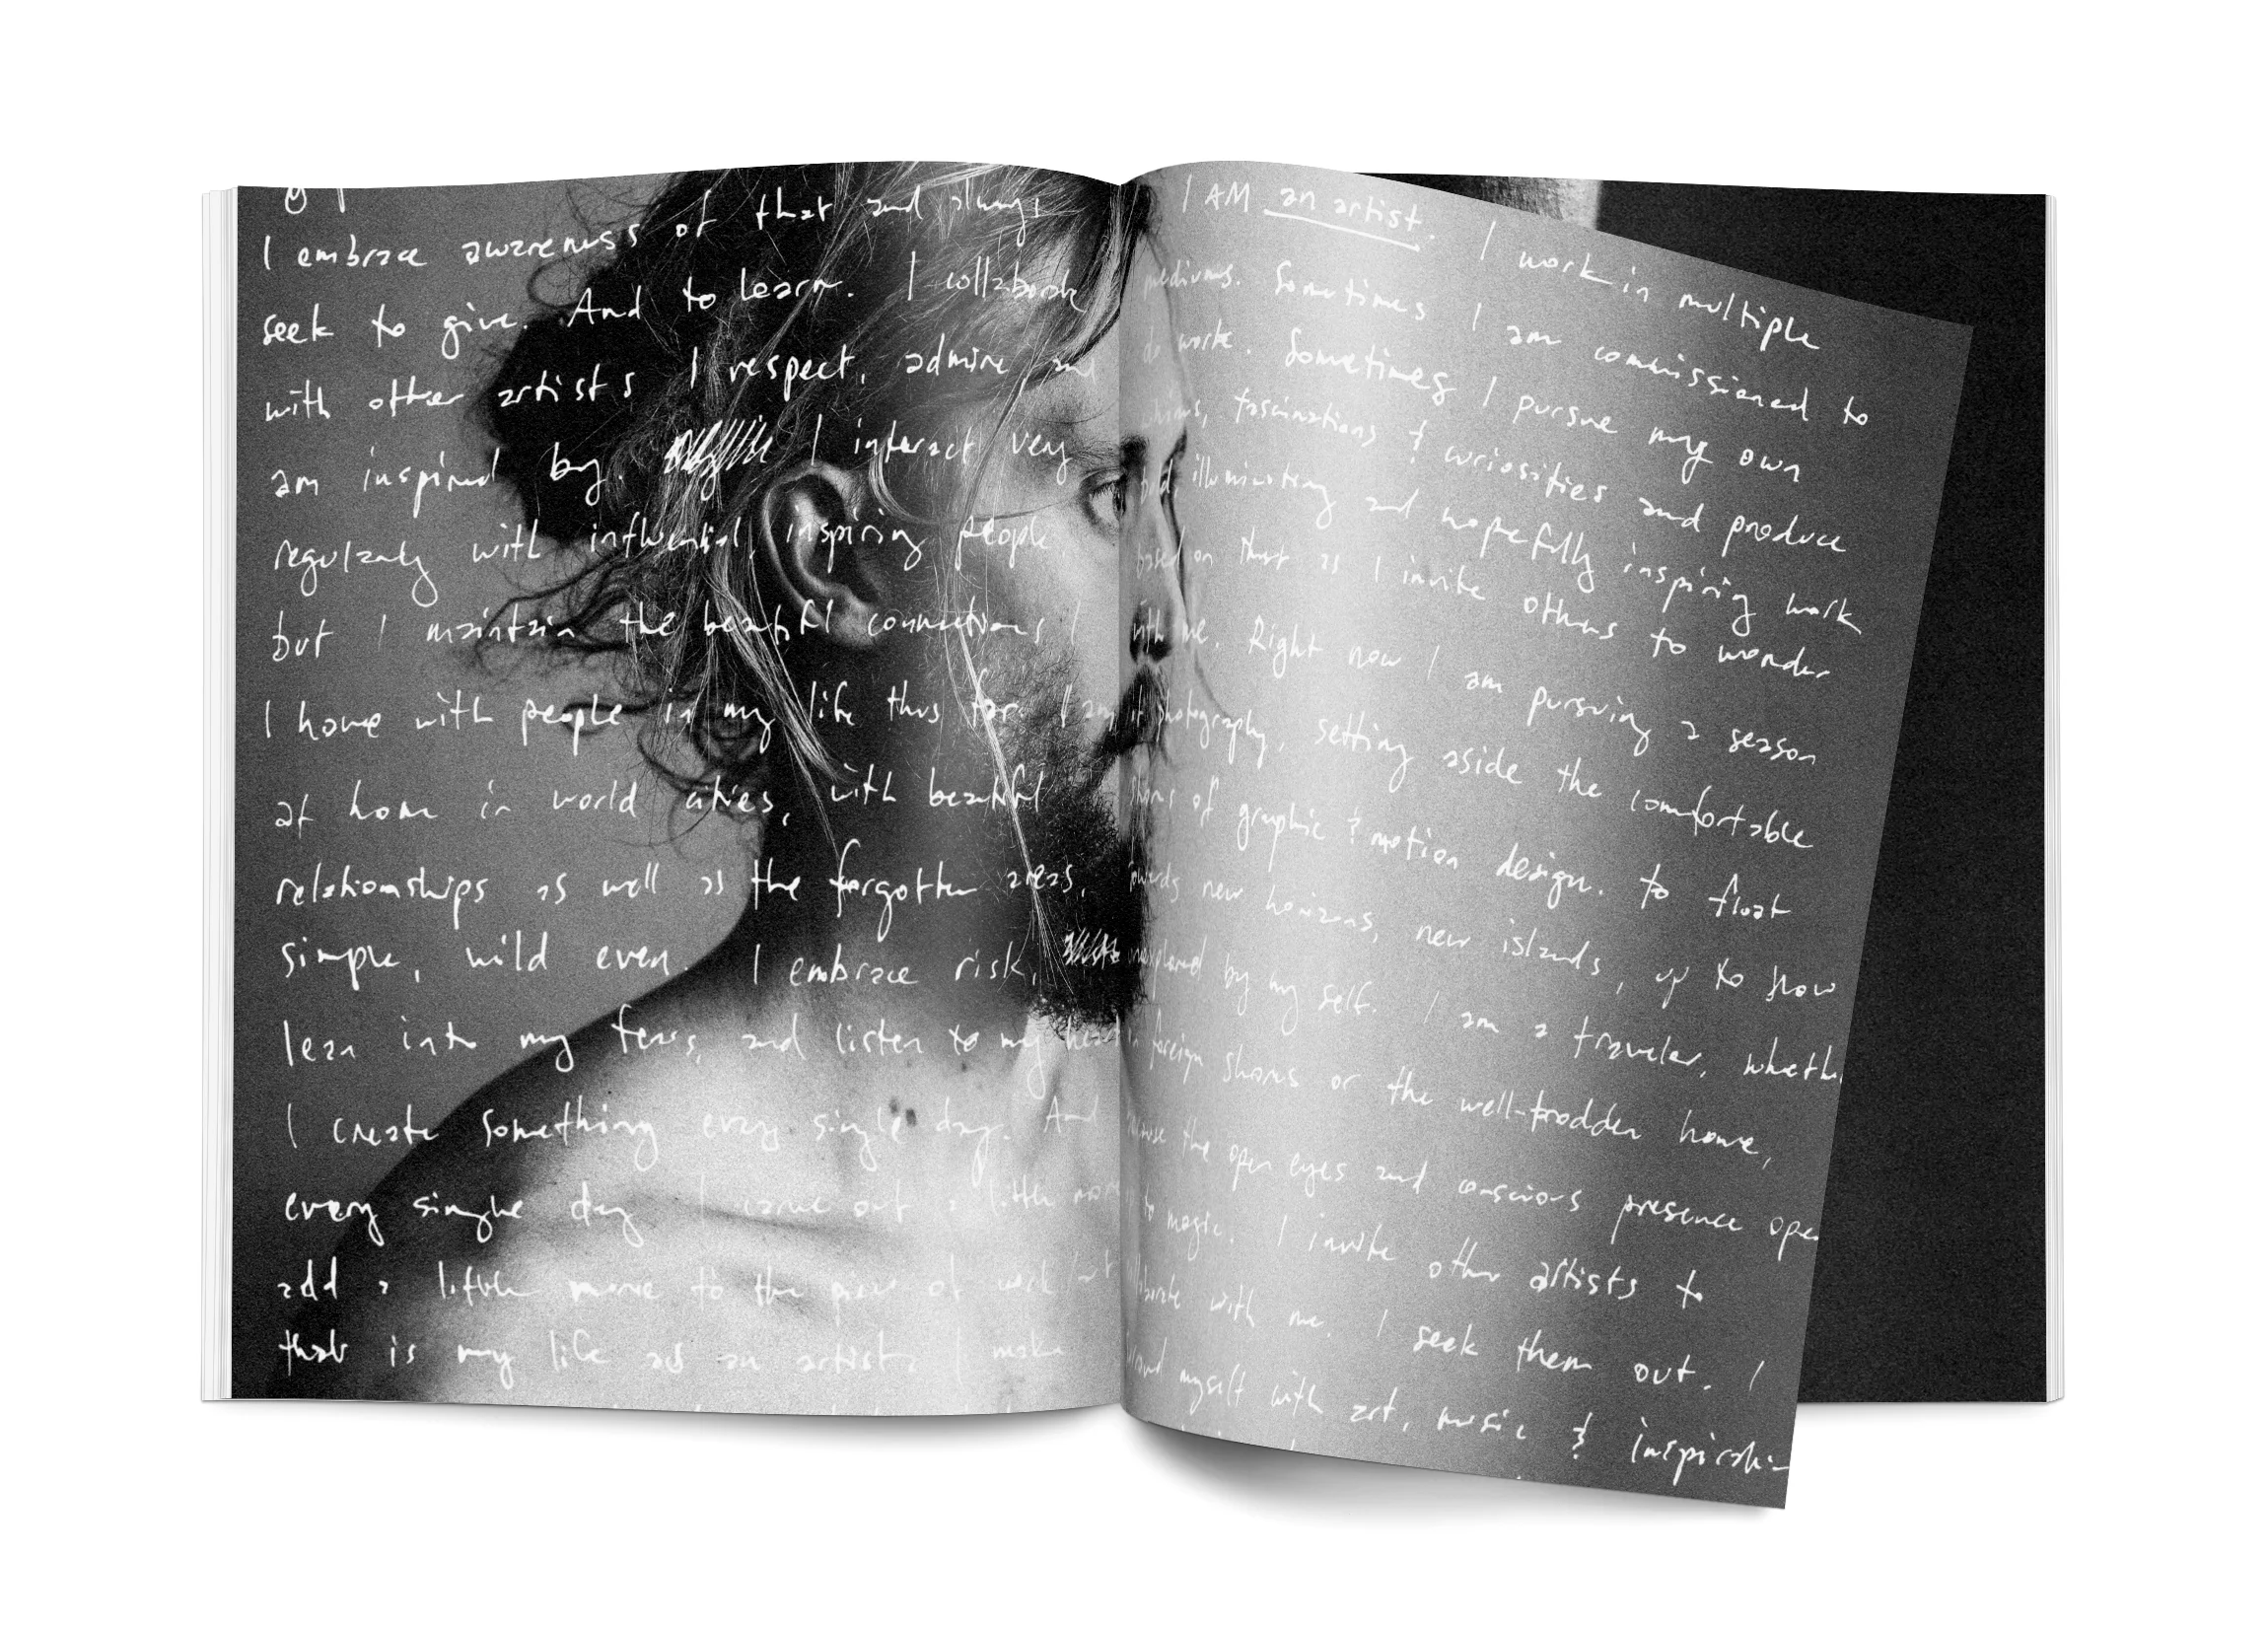 I embrace awareness of that and always
seek to give. And to learn. I collaborate
with other artists I respect, admire, and
am inspired by. I interact very
regularly with influential, inspiring people,
but I maintain the beautiful connections I
I have with people in my life thus far. I am
at home in world cities, with beautiful
relationships as well as the forgotten areas,
simple, wild even. I embrace risk,
lean into my fears, and listen to my
I create something every single day. And
every single day I carve out a little more
add a little more to the piece of work that
that is my life as an artist. I make
I AM an artist. I work in multiple
mediums. Sometimes I am commissioned to
do work. Sometimes I pursue my own
fascinations & curiosities and produce
illuminating and hopefully inspiring work
based on that as I invite others to wonder
with me. Right now I am pursuing a season
in photography, setting aside the comfortable
of graphic & motion design. to float
towards new horizons, new islands, up to now
unexplored by my self. I am a traveler,
foreign shores or the well-trodden home,
the open eyes and conscious presence open
to magic. I invite other artists to
with me. I seek them out. I
myself with art, music &